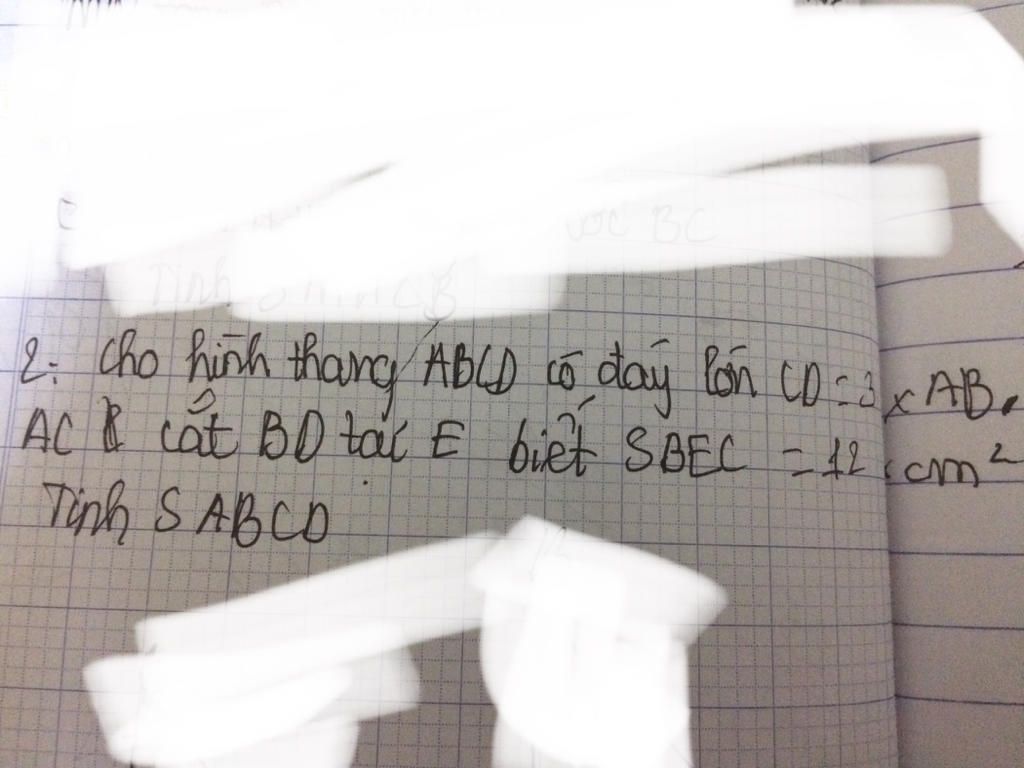 ước BC
Tính S
2: Cho hình thang ABCD có đáy lớn CD = 3 x AB.
AC cắt BD tại E biết SBEC = 12 cm²
Tính S ABCD